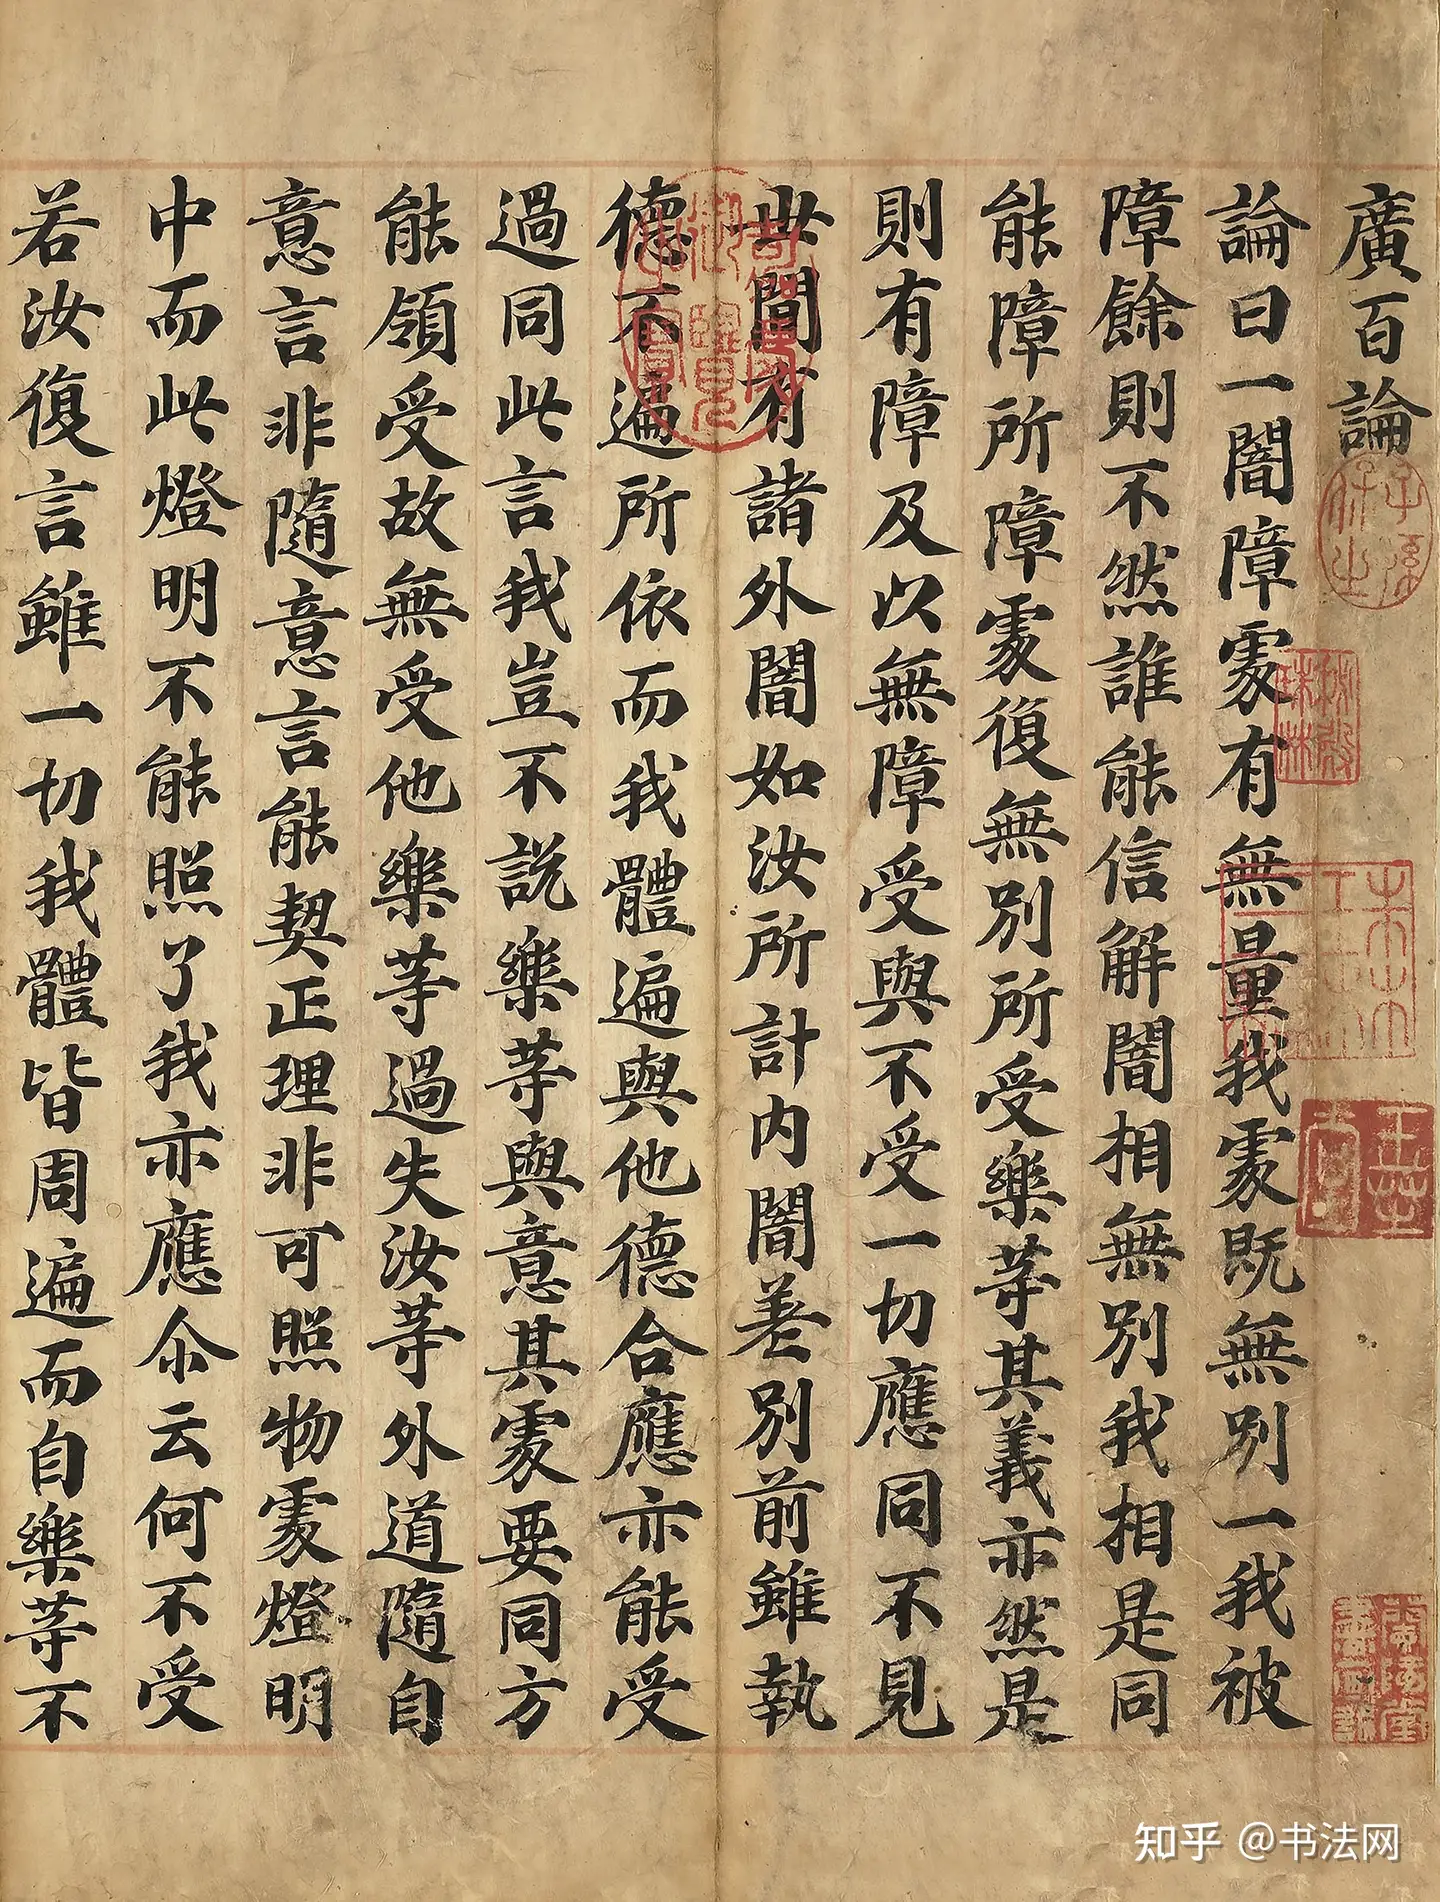 廣百論
論曰一闇障處有無量我處既無別一我被
障餘則不然誰能信解闇相無別我相是同
能障所障處復無別所受樂等其義亦然是
則有障及以無障受與不受一切應同不見
世間有諸外闇如汝所計内闇差別前雖執
德不遍所依而我體遍與他德合應亦能受
過同此言我豈不説樂等與意其處要同方
能領受故無受他樂等過失汝等外道隨自
意言非隨意言能契正理非可照物處燈明
中而此燈明不能照了我亦應尒云何不受
若汝復言雖一切我體皆周遍而自樂等不
知乎 @书法网